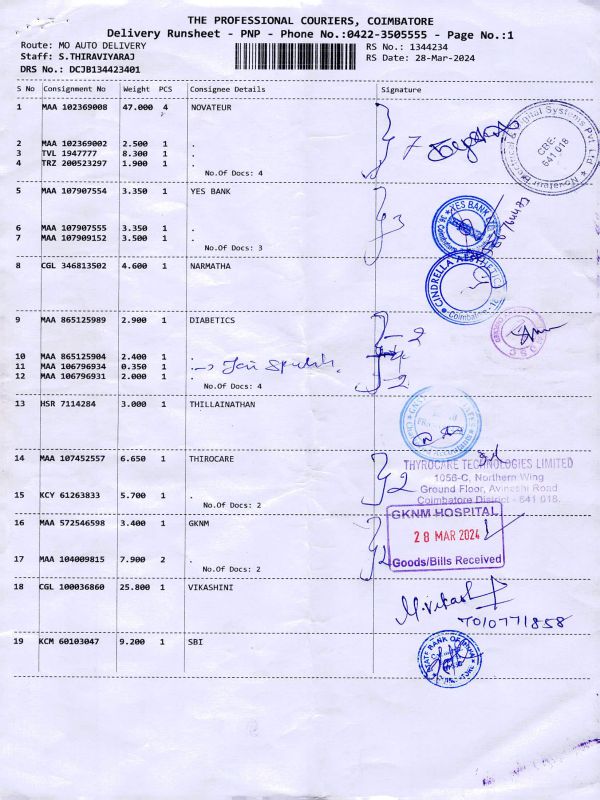 THE PROFESSIONAL COURIERS, COIMBATORE
Delivery Runsheet - PNP - Phone No.:0422-3505555 - Page No.:1
Route: MO AUTO DELIVERY RS No.: 1344234
Staff: S.THIRAVIYARAJ RS Date: 28-Mar-2024
DRS No.: DCJB134423401
S No Consignment No Weight PCS Consignee Details Signature
1 MAA 102369008 47.000 4 NOVATEUR
7
CBE-
641 018
2 MAA 102369002 2.500 1 .
3 TVL 1947777 8.300 1 .
4 TRZ 200523297 1.900 1 .
No.Of Docs: 4
5 MAA 107907554 3.350 1 YES BANK
3
YES BANK LTD
6 MAA 107907555 3.350 1 .
7 MAA 107909152 3.500 1 .
No.Of Docs: 3
8 CGL 346813502 4.600 1 NARMATHA
CINDRELLA AESTHETIC
Coimbatore - 18
9 MAA 865125989 2.900 1 DIABETICS
- 2
10 MAA 865125904 2.400 1 .
11 MAA 106796934 0.350 1 .
12 MAA 106796931 2.000 1 .
- 2
No.Of Docs: 4
13 HSR 7114284 3.000 1 THILLAINATHAN
14 MAA 107452557 6.650 1 THIROCARE
THYROCARE TECHNOLOGIES LIMITED
1056-C, Northern Wing
Ground Floor, Avinashi Road
Coimbatore District - 641 018.
2
15 KCY 61263833 5.700 1 .
No.Of Docs: 2
16 MAA 572546598 3.400 1 GKNM
GKNM HOSPITAL
28 MAR 2024
Goods/Bills Received
2
17 MAA 104009815 7.900 2 .
No.Of Docs: 2
18 CGL 100036860 25.800 1 VIKASHINI
M.Vikash
7010771858
19 KCM 60103047 9.200 1 SBI
STATE BANK OF INDIA